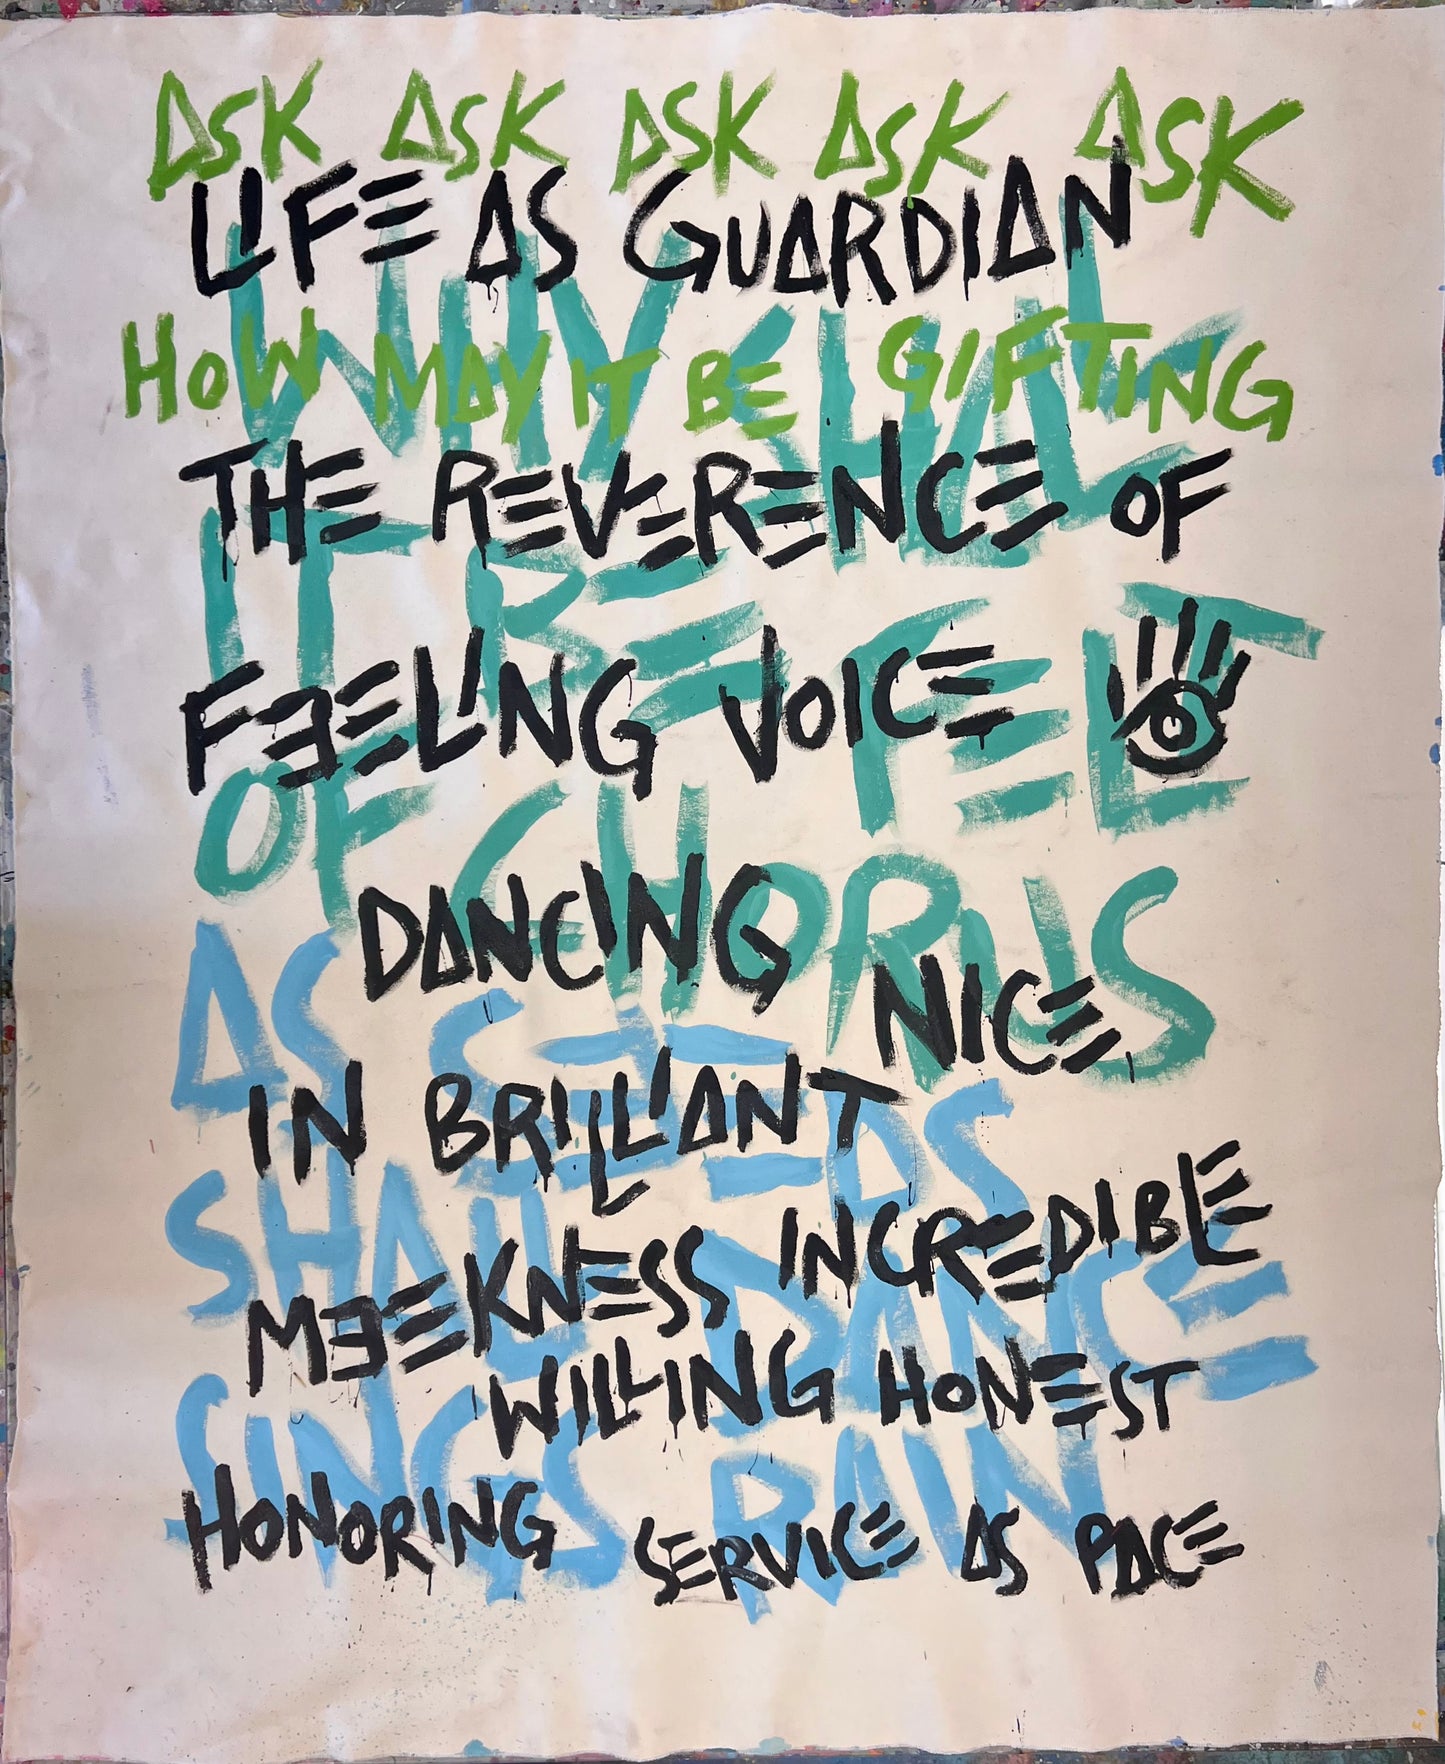 ASK ASK ASK ASK ASK
LIFE AS GUARDIAN
WHY SHALL
HOW MAY IT BE GIFTING
THE REVERENCE OF
IT BE FELT
FEELING VOICE
OF CHORUS
DANCING NICE
AS SEEDS
IN BRILLIANT
SHALL DANCE
MEEKNESS INCREDIBLE
WILLING HONEST
SINGS RAIN
HONORING SERVICE AS PACE